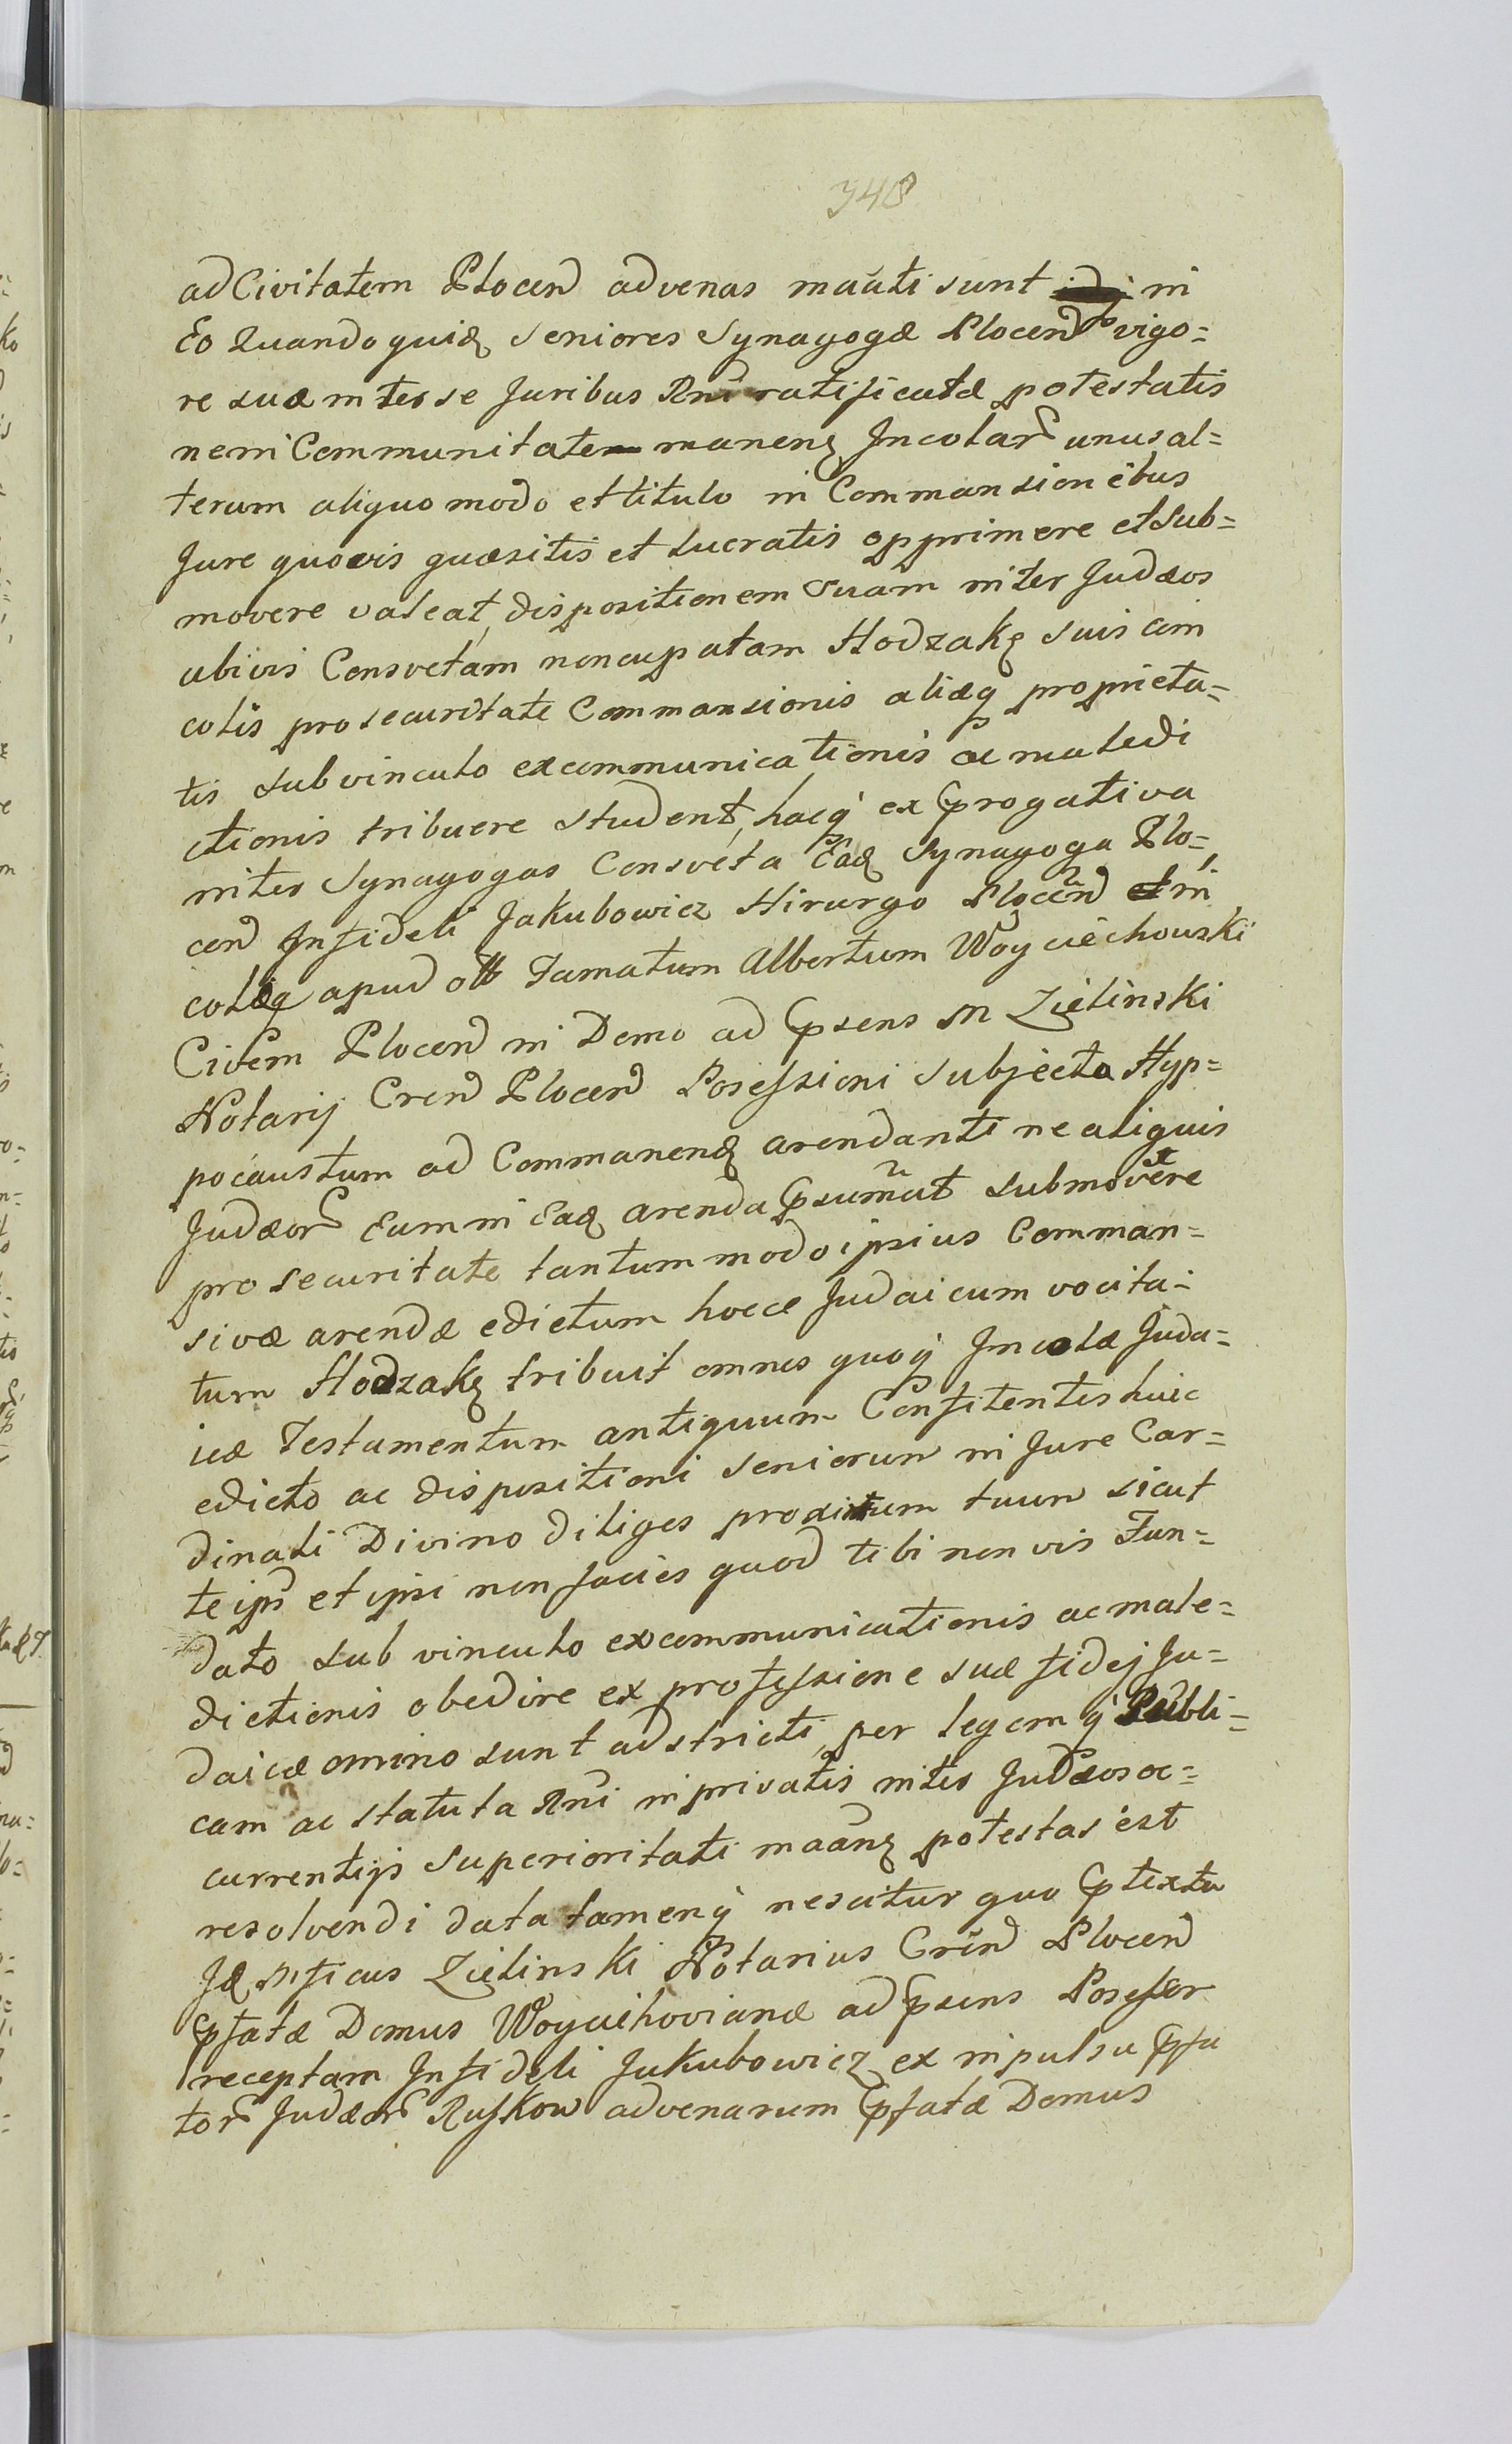 348
ad Civitatem Plocen advenas mauti sunt in
Eo Quandoquidę Seniores Synagogæ Plocen vigo=
re suæ inter se Juribus Rni ratificatæ potestatis
ne in Communitate manenę Incolar unus al=
terum aliquo modo et titulo in Commansionibus
Jure quovis quæsitis et lucratis opprimere et sub=
movere valeat, dispositionem Suam inter Judæos
ubivis Consvetam noncupatam Hodzakę suis cim
colis pro securitate Commansionis aliæq proprieta=
tis sub vinculo excommunicationis ac maledi
ctionis tribuere student, hacq ex Progativa
inter Synagogas Consveta Eadę Synagoga Plo=
cen Infideli Jakubowicz Hirurgo Plocen in
colæq apud olb Famatum Albertum Woyciechowski
Civem Plocen in Domo ad Psens M Zielinski
Notarij Cren Plocen Posessioni Subjecta Hyp=
pocaustum ad Commanenę arendanti ne aliquis
Judæor Eum in Eadę arenda Psumat submovere
pro securitate tantummodo ipsius Comman=
sivæ arendæ edictum hocce Judaicum vocita=
tum Hodzakę tribuit omnes quoq Incolæ Juda=
icæ Testamentum antiquum Confitentes huic
edicto ac dispositioni Seniorum in Jure Car=
dinali Divino diliges proximum tuum sicut
te ips et ipsi non facies quod tibi non vis Fun=
dato sub vinculo excommunicationis ac male=
dictionis obedire ex professione suæ fidej Ju=
daicæ omnino sunt adstricti, per legem q Publi=
cam ac statuta Rni in privatis inter Judæos oc=
currentijs Superioritati maanę potestas est
resolvendi data tamenq nescitur quo Ptextu
Idę Mficus Zielinski Notarius Cren Plocen
Pfatæ Domus Woyciehovianæ ad Psens Posessor
receptam Infideli Jakubowicz ex inpulsu Pfa
tor Judæor Ruskow advenarum Pfatæ Domus